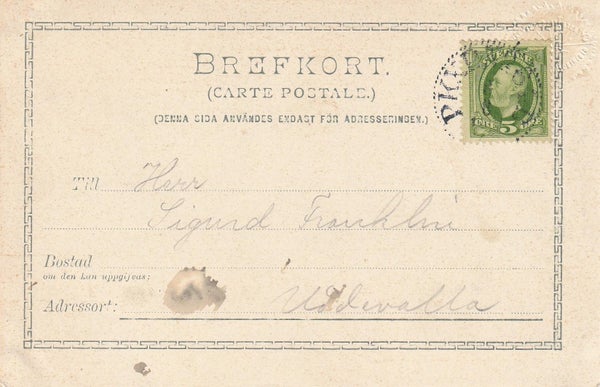 BREFKORT.
(CARTE POSTALE.)
(DENNA SIDA ANVÄNDES ENDAST FÖR ADRESSERINGEN.)
Till Herr
Sigurd Franklin
Bostad
om den kan uppgifvas:
Adressort: Uddevalla
SVERIGE
5